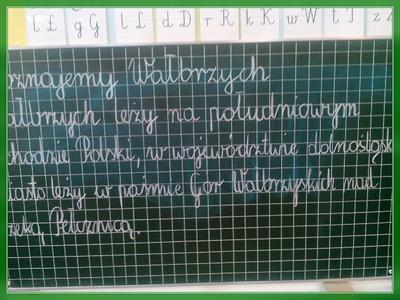 ł Ł g G l L ł Ł d D r R k K w W t T z
oznajemy Wałbrzych
ałbrzych leży na południowym
chodzie Polski, w województwie dolnośląsk
iasto leży w paśmie Gór Wałbrzyskich nad
zeką Pełcznicą.